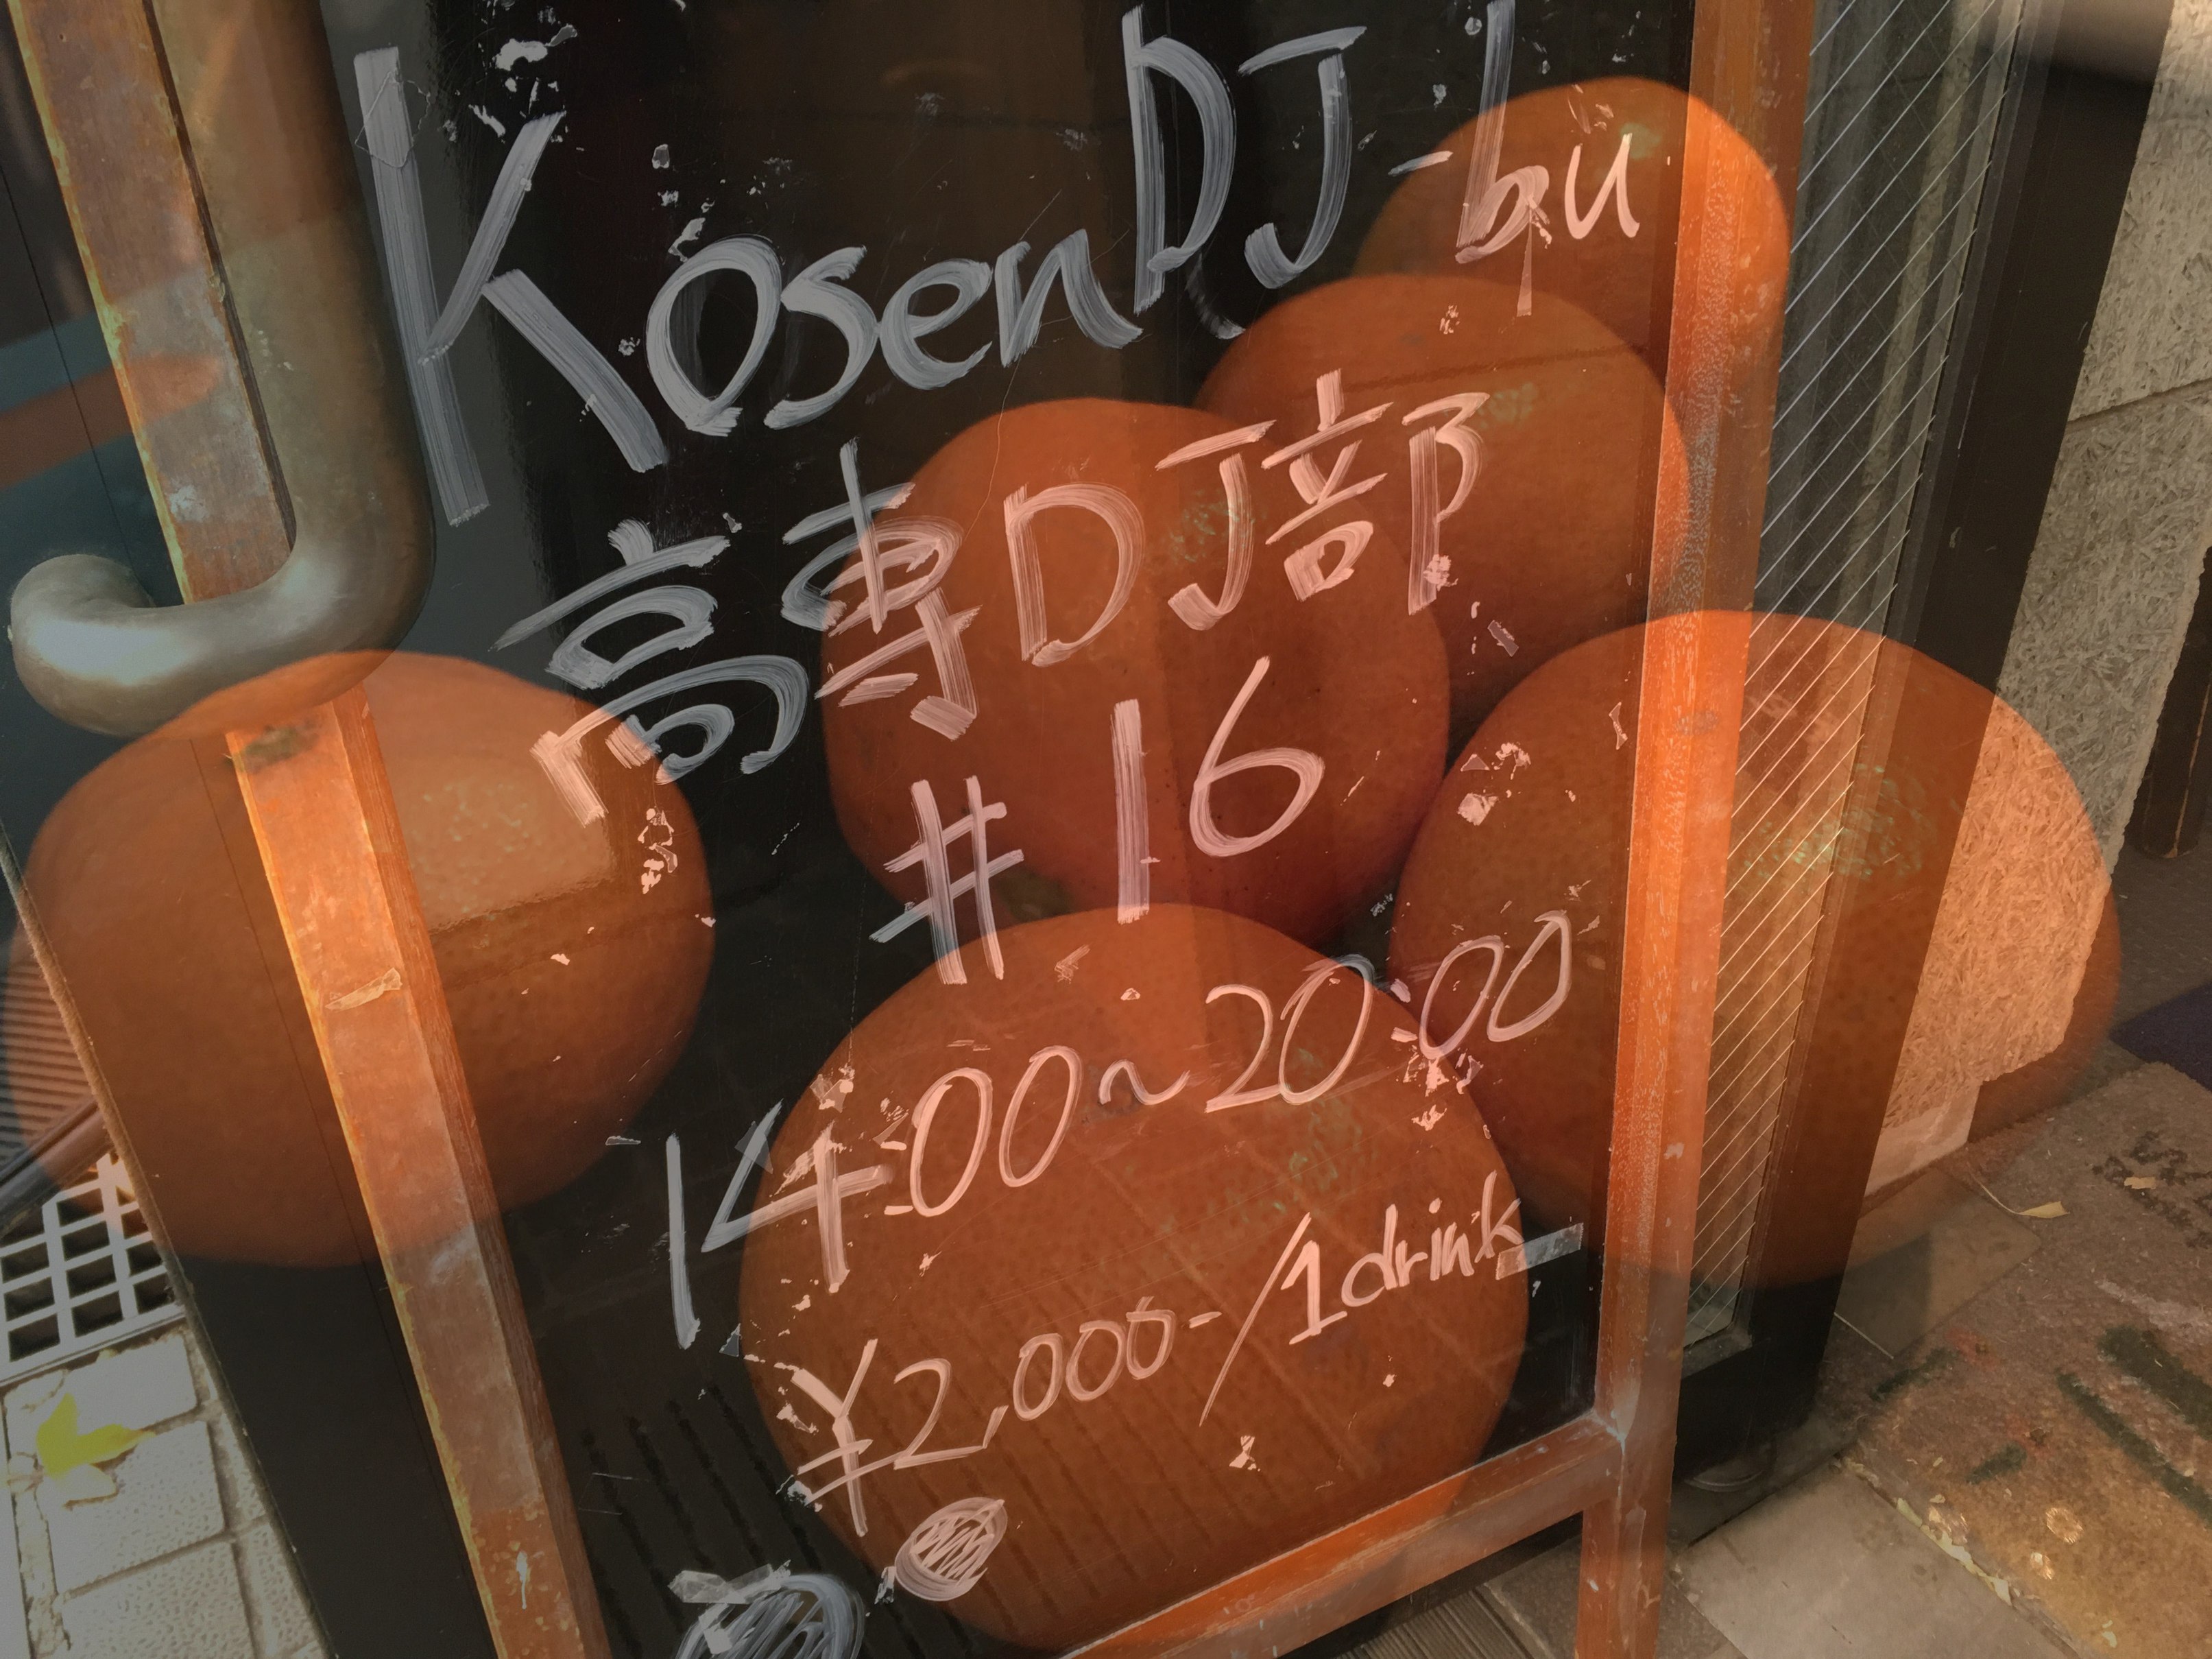 KosenDJ-bu
高専DJ部
#16
14:00~20:00
¥2,000-/1drink